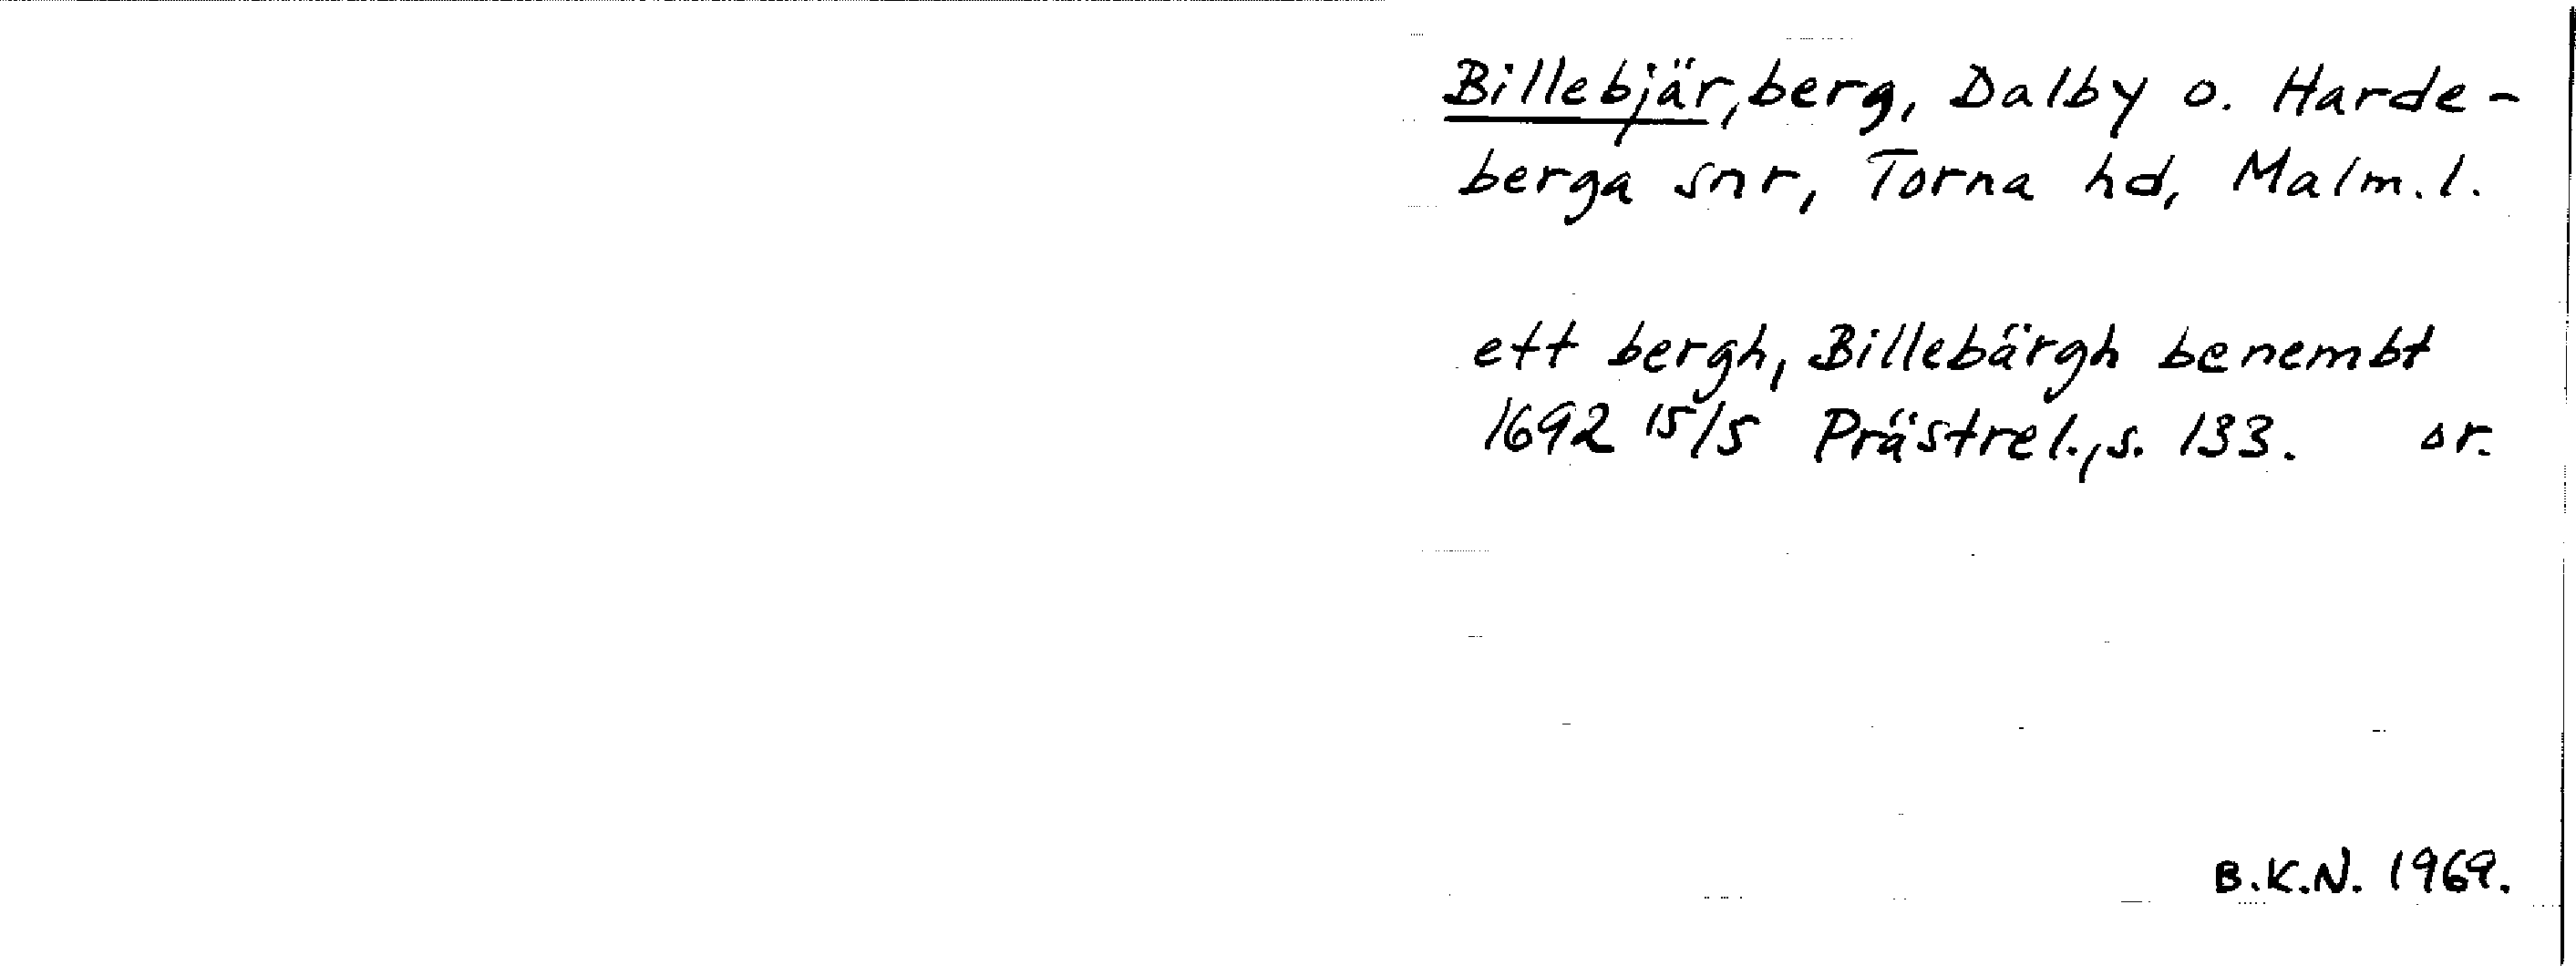 Billebjär, berg, Dalby o. Harde-
berga snr, Torna hd, Malm. l.
ett bergh, Billebärgh benembt
1692 15/5 Prästrel., s. 133. or.
B.K.N. 1969.